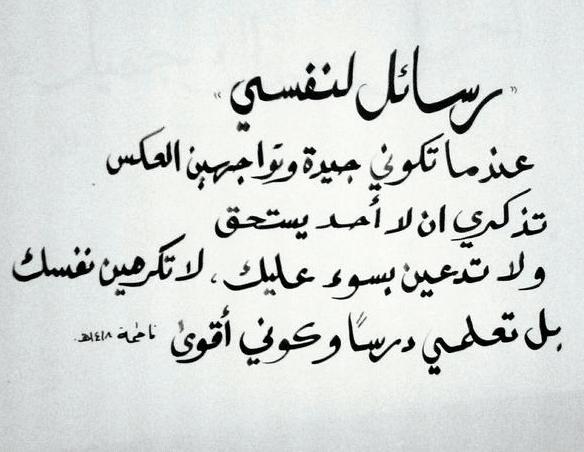 "رسائل لنفسي"
عندما تكوني جيدة وتواجهين العكس
تذكري ان لا أحد يستحق
ولا تدعين بسوء عليك، لا تكرهين نفسك
بل تعلمي درسًا وكوني أقوى